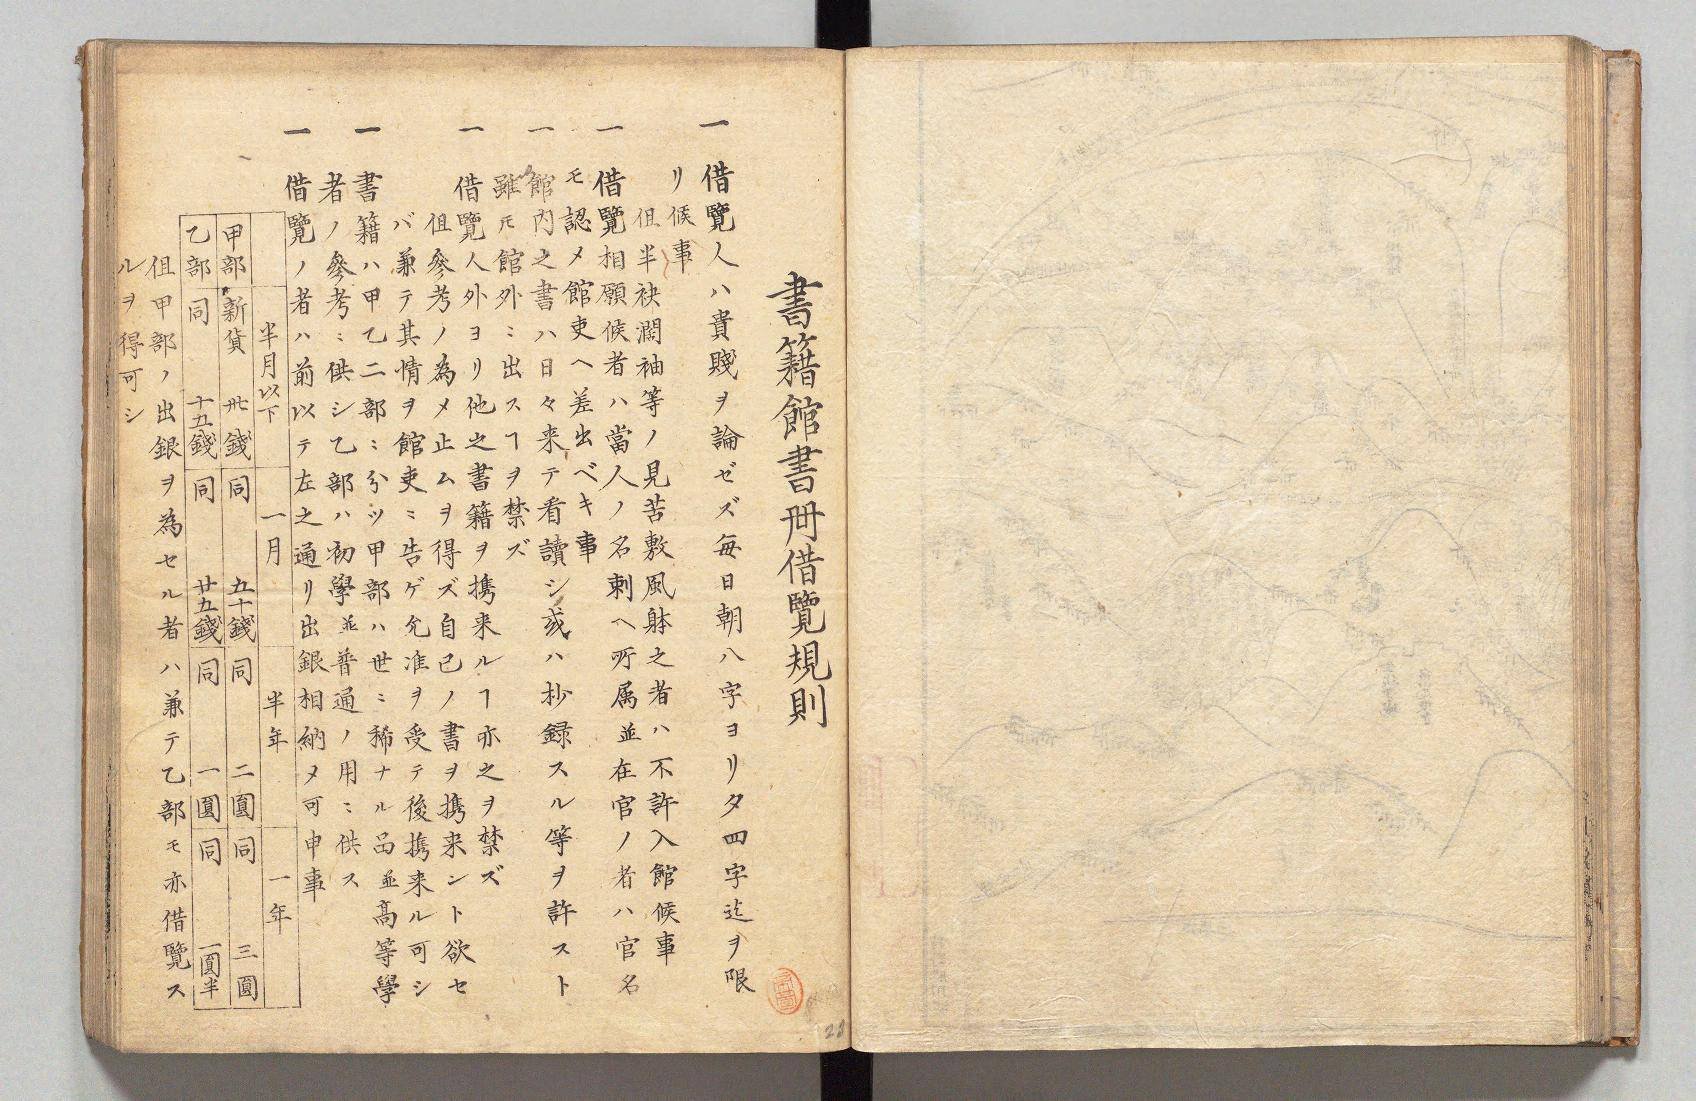 書籍館書冊借覽規則
一 借覽人ハ貴賤ヲ論ゼズ毎日朝八字ヨリ夕四字迄ヲ限
リ候事
但半袂濶袖等ノ見苦敷風躰之者ハ不許入館候事
一 借覽相願候者ハ當人ノ名刺ヘ所属並在官ノ者ハ官名
モ認メ館吏ヘ差出ベキ事
一 館内之書ハ日々来テ看讀シ或ハ抄録スル等ヲ許スト
雖モ館外ニ出スヿヲ禁ズ
一 借覽人外ヨリ他之書籍ヲ携来ルヿ亦之ヲ禁ズ
但參考ノ為メ止ムヲ得ズ自己ノ書ヲ携来ント欲セ
バ兼テ其情ヲ館吏ニ告ゲ允准ヲ受テ後携来ル可シ
一 書籍ハ甲乙二部ニ分ツ甲部ハ世ニ稀ナル品並高等學
者ノ參考ニ供シ乙部ハ初學並普通ノ用ニ供ス
一 借覽ノ者ハ前以テ左之通リ出銀相納メ可申事
半月以下 一月 半年 一年
甲部 新貨 卅錢 同 五十錢 同 二圓 同 三圓
乙部 同 十五錢 同 廿五錢 同 一圓 同 一圓半
但甲部ノ出銀ヲ為セル者ハ兼テ乙部モ亦借覽ス
ルヲ得可シ